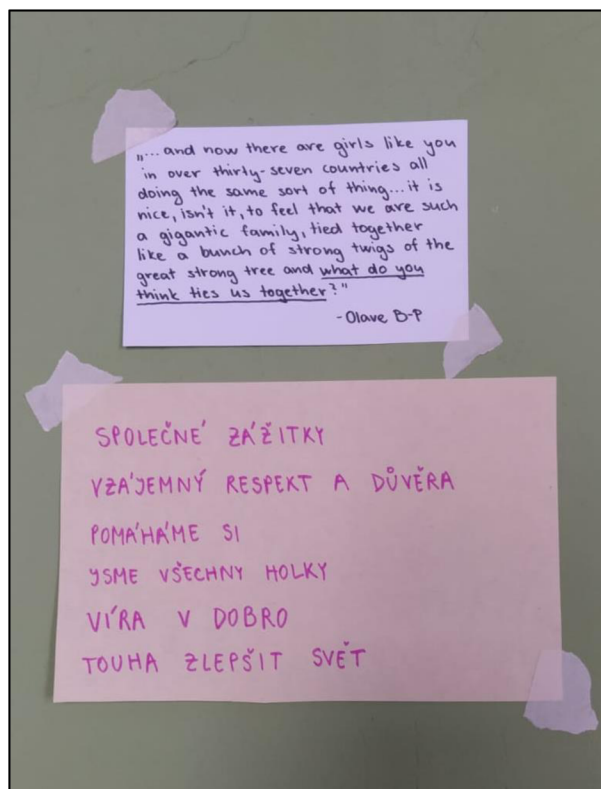 „...and now there are girls like you
in over thirty-seven countries all
doing the same sort of thing...it is
nice, isn't it, to feel that we are such
a gigantic family, tied together
like a bunch of strong twigs of the
great strong tree and what do you
think ties us together?"
-Olave B-P
SPOLEČNÉ ZÁŽITKY
VZÁJEMNÝ RESPEKT A DŮVĚRA
POMÁHÁME SI
JSME VŠECHNY HOLKY
VÍRA V DOBRO
TOUHA ZLEPŠIT SVĚT